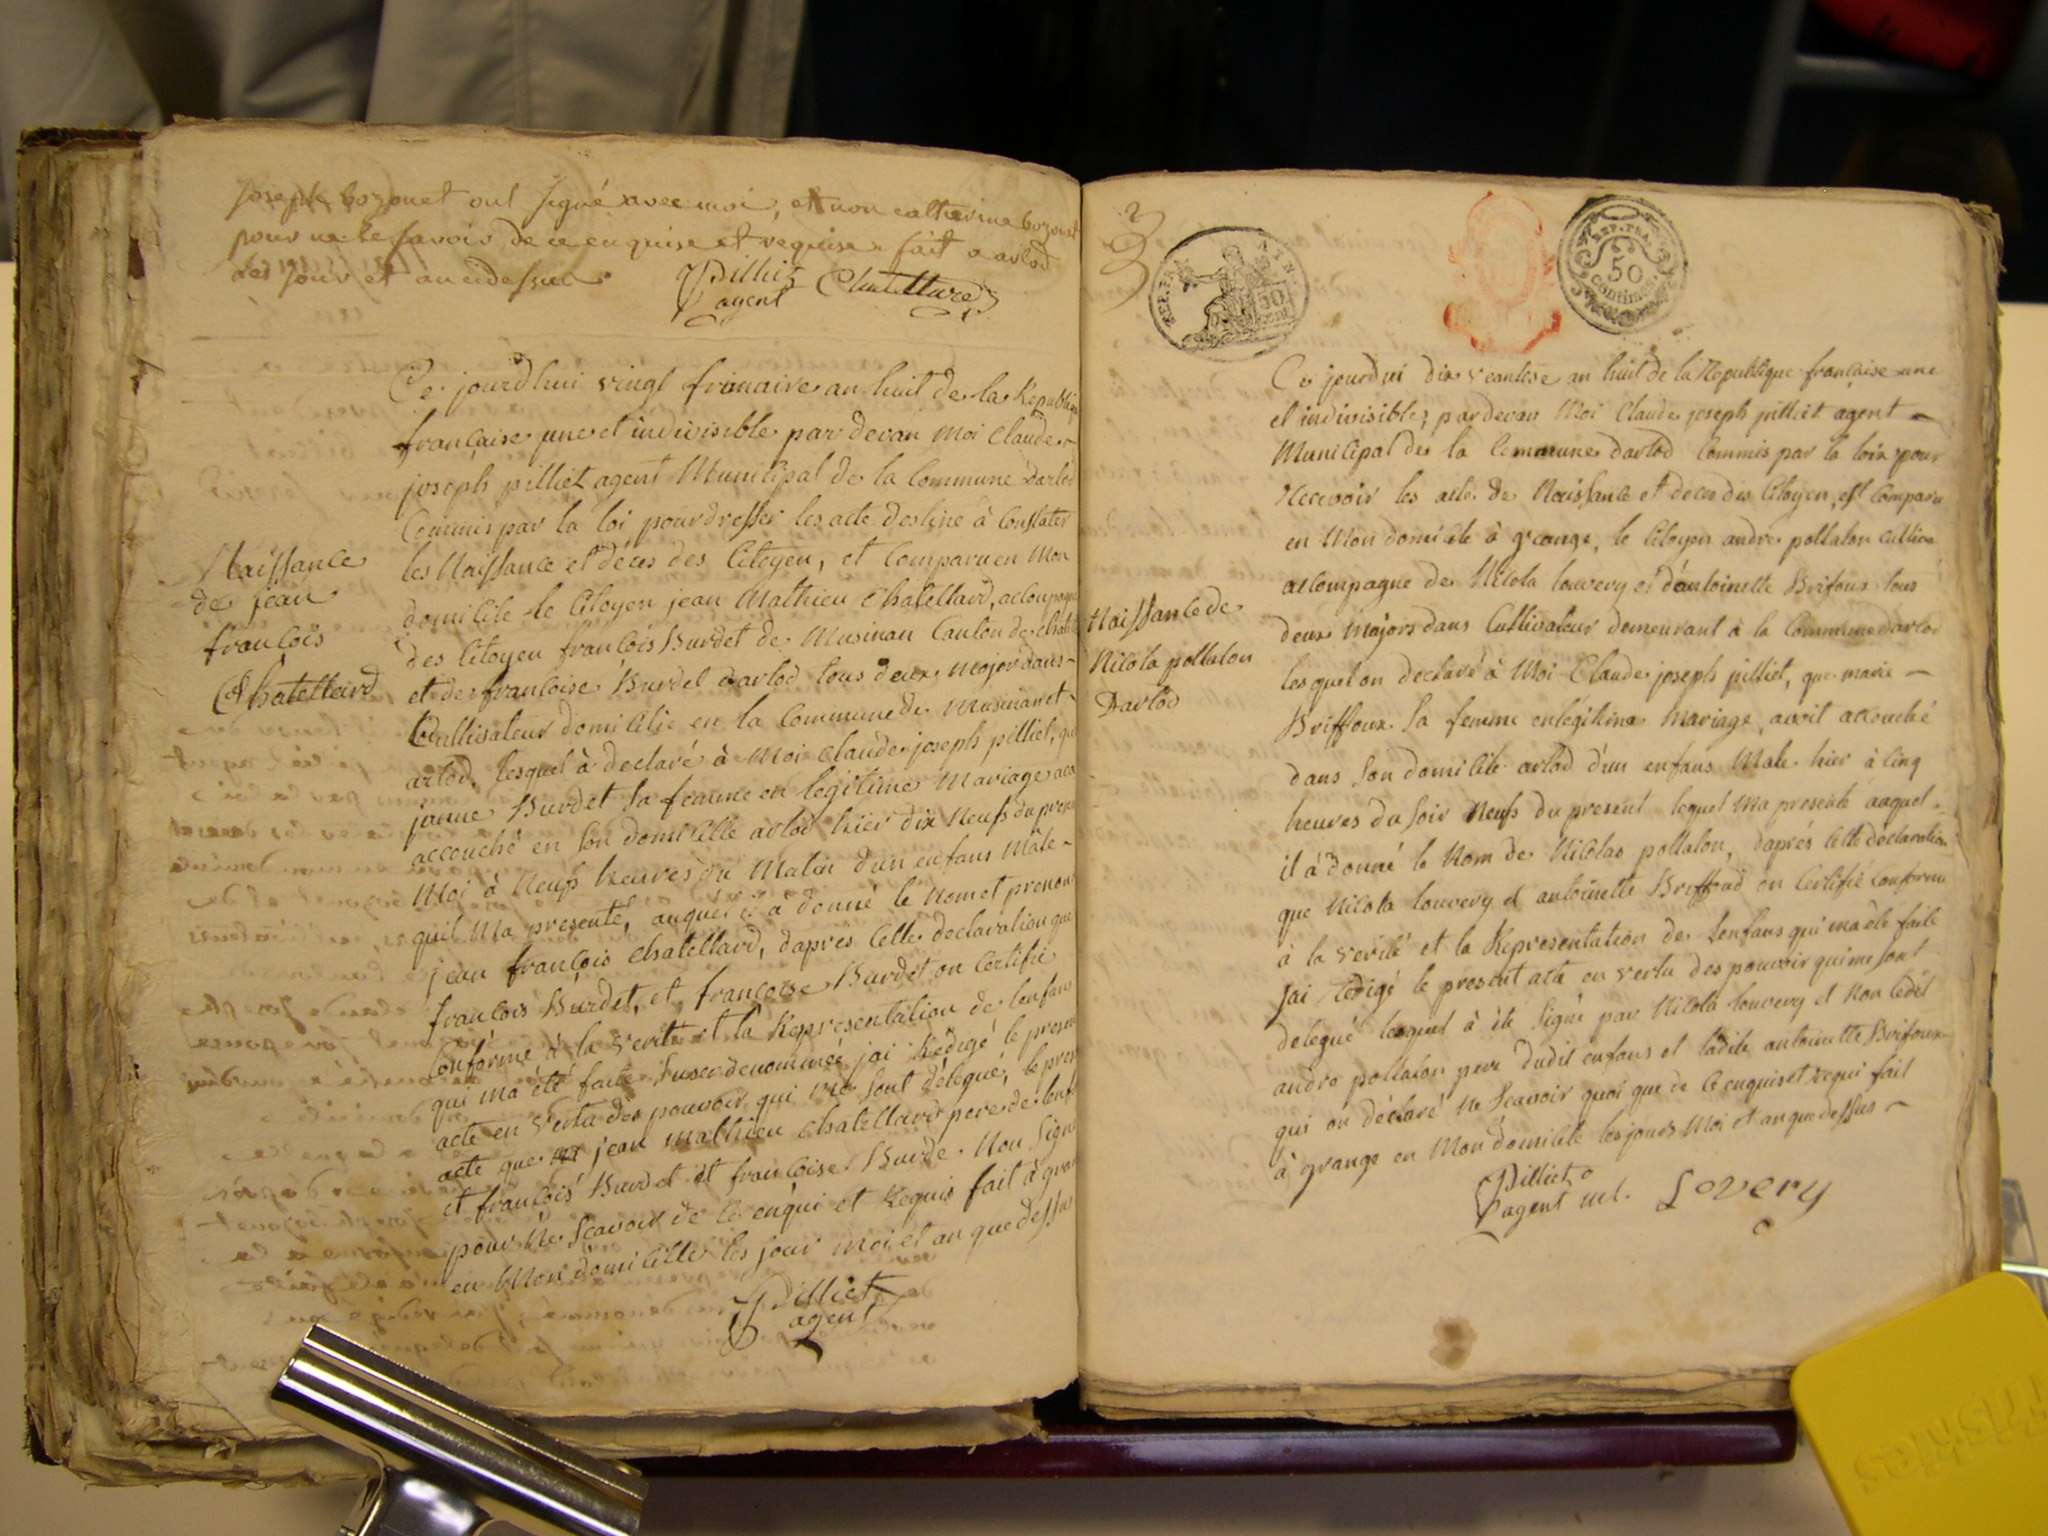 Joseph bozonet ont signé avec moi, et non catherine bozonet
pour ne le savoir de ce enquise et requise fait a arlod
les jour et an cidessus
Pilliet
agent
Chatellard
Ce jourdhui vingt frimaire an huit de la Republique
française une et indivisible par devan moi Claude
joseph pilliet agent Municipal de la Commune darlod
Commis par la loi pour dresser les acte destiné à Constater
les Naissance et décés des Citoyen, et Comparu en Mon
domicile le Citoyen jean Mathieu Chatellard, accompagné
des Citoyen françois Burdet de Musinan Canton de
et de françoise Burdet darlod tous deux major dans
Cultivateur domicilié en la Commune de Musinan et
arlod, lesquel à declaré à Moi Claude joseph pilliet, que
janne Burdet sa femme en légitime Mariage
accouché en son domicille arlod hier dix Neufs du present
Moi à Neufs heures du Matin dun enfans Mâle
quil Ma presenté, auquel il à donné le Nom et prenom
jean françois chatellard, daprés Cette declaration que
françois Burdet, et françoise Burdet on Certifié
Conforme à la verité et la Representation de lenfans
qui ma été faite Susdenommée jai Redigé le present
acte en vertu des pouvoir qui me sont délegué, le present
acte que jean Mathieu Chatellard pere de lenfans
et françois Burdet et françoise Burde Non Signé
pour Ne Scavoir de Ce enqui et Requis fait à grange
en Mon domicille les jour moi et an que dessus
Pilliet
agent
Naissance
de jean
françois
Chatellard
3
REP. FRA.
50
REP. FRA.
50
Centimes
Ce jourdui dix ventose an huit de la Republique française une
et indivisible, par devan Moi Claude joseph pilliet agent
Municipal de la Commune darlod Commis par la loix pour
Recevoir les acte de Naissance et deces des Citoyen, est Comparu
en Mon domicile à grange, le Citoyen andre pollalon Cultiva
accompagne de Nicola louvery et dantoinette Brifoux tous
deux Majors dans Cultivateur demeurant à la Commune darlod
lesquel on declaré à Moi Claude joseph pilliet, que marie
Briffoux sa femme en légitime Mariage, avoit accouché
dans son domicile arlod dun enfans Male hier à Cinq
heures du soir Neufs du present lequel Ma presenté auquel
il à donné le Nom de Nicolas pollalon, daprés Cette déclaration
que Nicola louvery et antoinette Briffoud on Certifié conforme
à la verité et la Representation de lenfans qui ma été faite
jai Redigé le present acte en vertu des pouvoir qui me sont
delegué lequel à été Signé par Nicola louvery et Non Ledit
andre pollalon pere dudit enfans et ladite antoinette Brifoux
qui on déclaré Ne Scavoir quoi que de Ce enquis et requi fait
à grange en Mon domicile les jours Moi et an que dessus
Pilliet
agent ml.
Lovery
Naissance de
Nicola pollalon
Darlod
Friskies